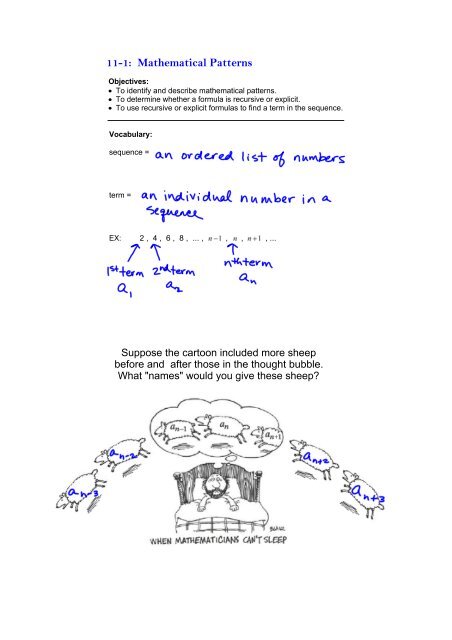 11-1: Mathematical Patterns
Objectives:
• To identify and describe mathematical patterns.
• To determine whether a formula is recursive or explicit.
• To use recursive or explicit formulas to find a term in the sequence.
Vocabulary:
sequence = an ordered list of numbers
term = an individual number in a
sequence
EX: 2 , 4 , 6 , 8 , ... , n−1 , n , n+1 , ...
1st term 2nd term nth term
a₁ a₂ aₙ
Suppose the cartoon included more sheep
before and after those in the thought bubble.
What "names" would you give these sheep?
aₙ₋₃ aₙ₋₂ aₙ₋₁ aₙ aₙ₊₁ aₙ₊₂ aₙ₊₃
WHEN MATHEMATICIANS CAN'T SLEEP